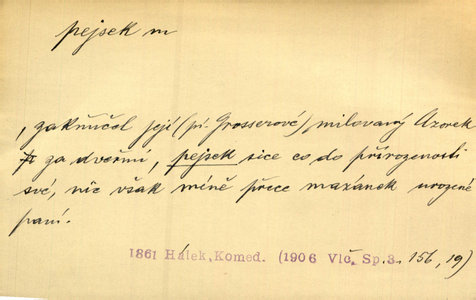 pejsek m
, zakňučel její (pí. Grosserové) milovaný Azorek
za dveřmi, pejsek sice co do přirozenosti
své, nic však méně přece mazánek urozené
paní.
1861 Hálek, Komed. (1906 Vlč. Sp. 3. 156, 19)